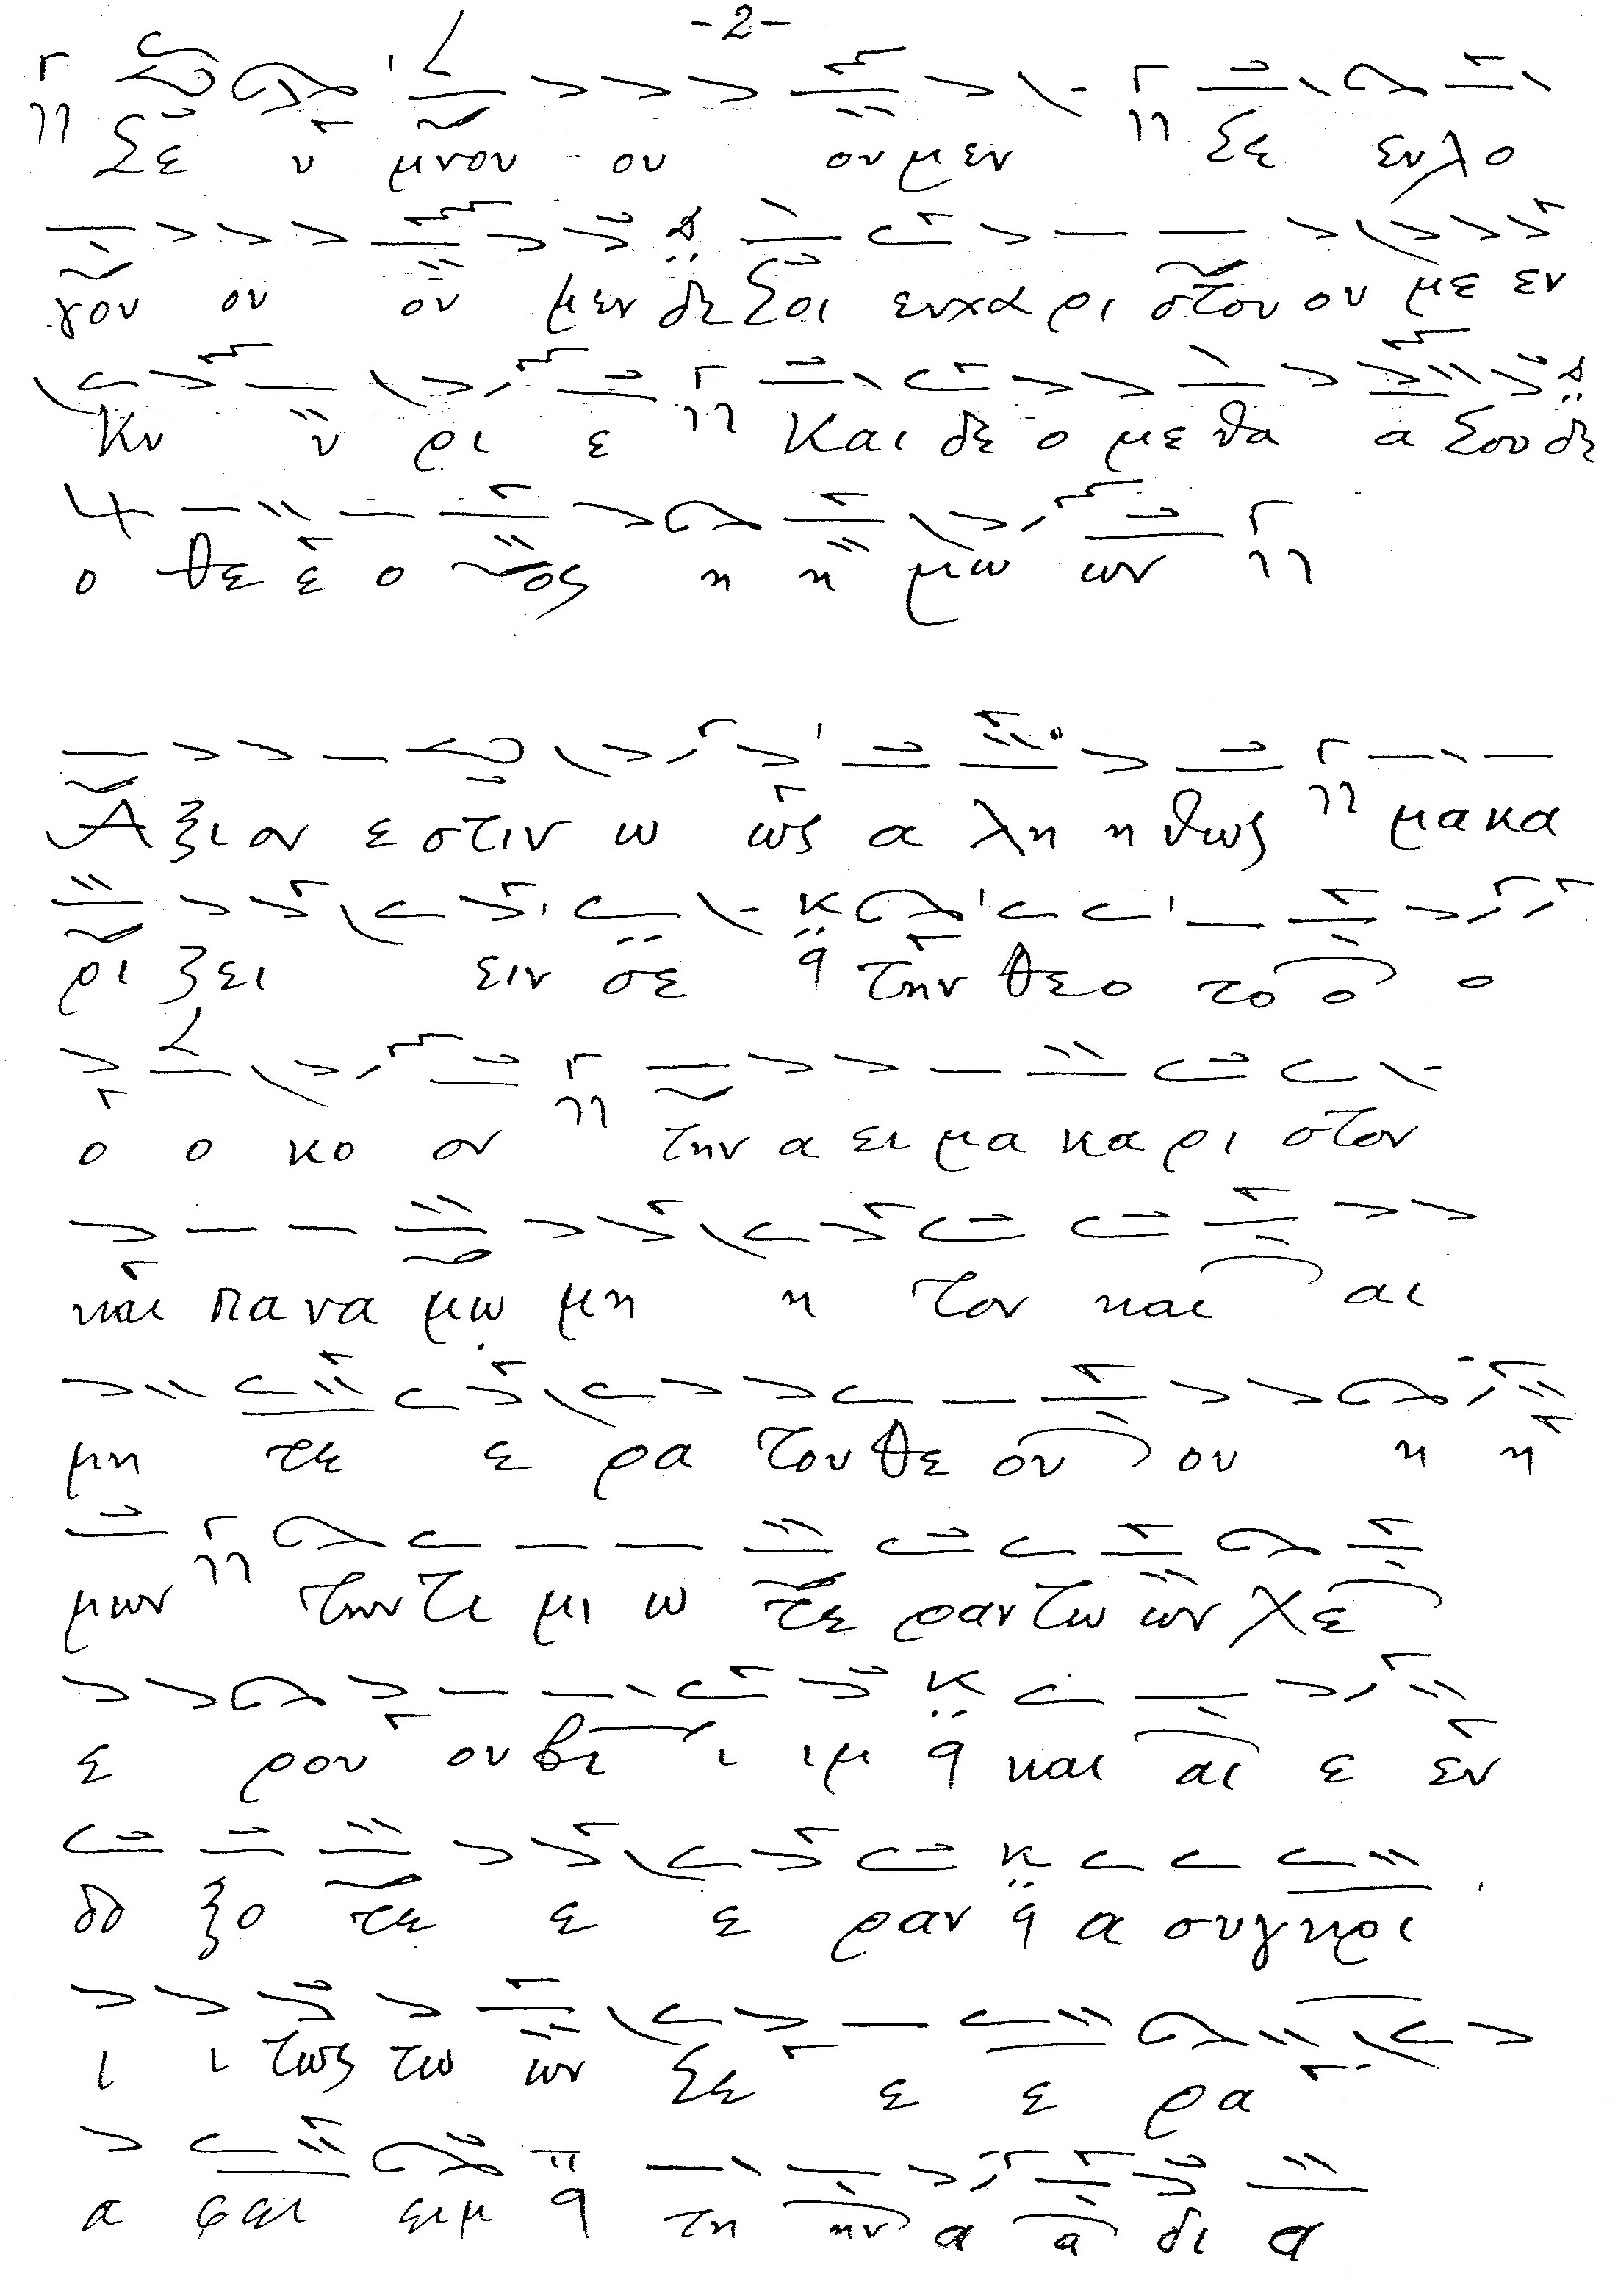 -2-
Σε υ μνου ου ουμεν Σε ευλο
γου ου ου μεν δι Σοι ευχα ρι στου ου με εν
Κυ υ ρι ε Και δε ο με θα α Σου δι
ο θε ε ο ος η η μω ων
Α ξι ον ε στιν ω ως α λη η θως μα κα
ρι ζει ειν σε την θεο το ο ο
ο ο κο ον την α ει μα κα ρι στον
και πα να μω μη η τον και αι
μη τε ε ρα του θε ου ου η η
μων την τι μι ω τε ραν τω ων χε
ε ρου ου βι ι ιμ και αι ε εν
δο ξο τε ε ε ραν α συγκρι
ι ι τως τω ων Σε ε ε ρα
α φει ειμ τη ην α α δι α